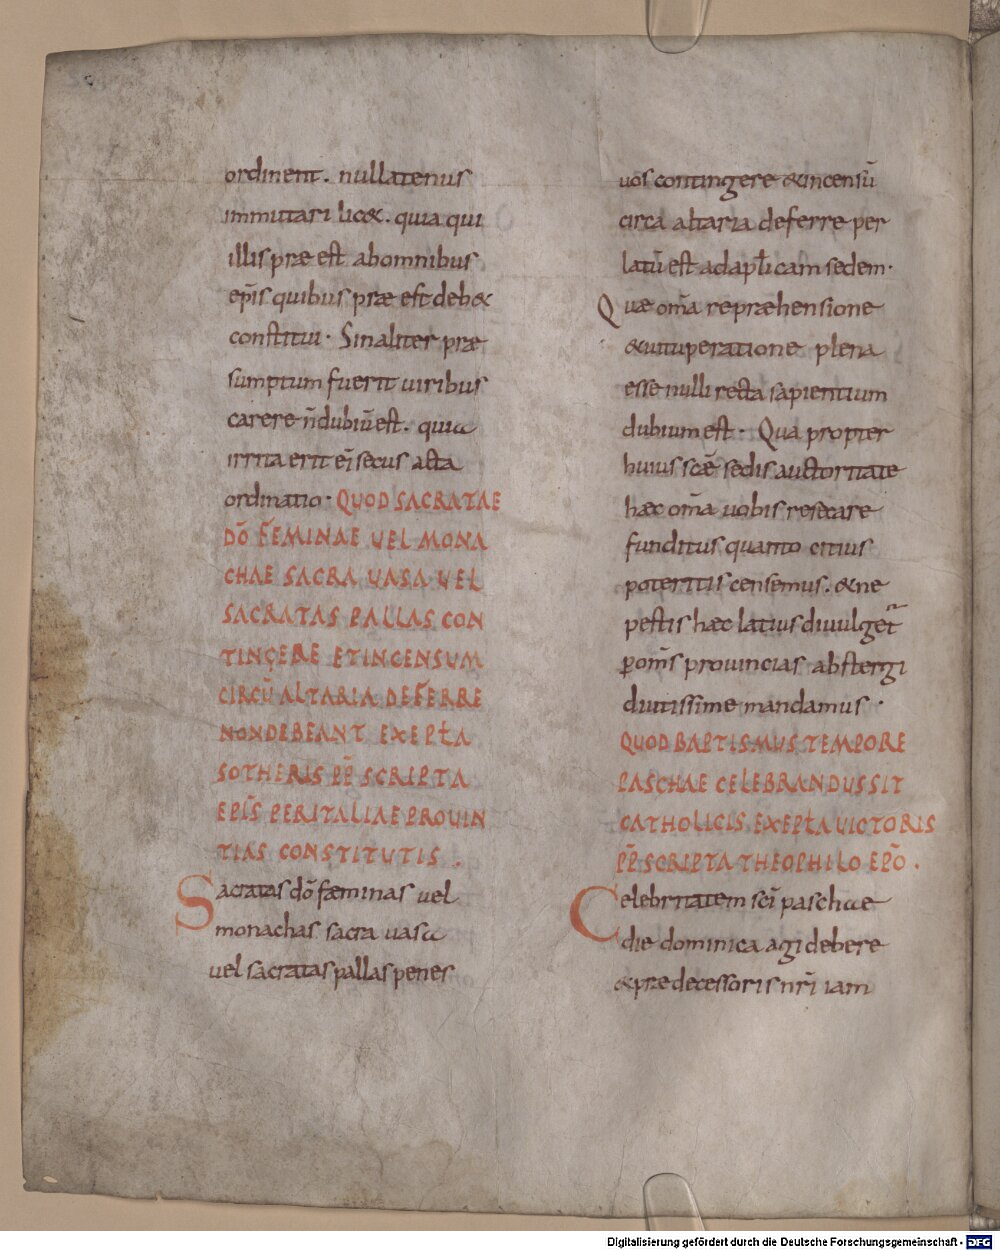 ordinent. nullatenus
immutari lic&. quia qui
illis præ est abomnibus
ep̄is quibus præ est deb&
constitui· Sinaliter præ
sumptum fuerit uiribus
carere n̄ dubiū est. quia
irrita erit ei secus acta
ordinatio· QUOD SACRATAE
DŌ FEMINAE UEL MONA
CHAE SACRA UASA UEL
SACRATAS PALLAS CON
TINGERE ET INCENSUM
CIRCŪ ALTARIA DEFERRE
NON DEBEANT EXEPL̄A
SOTHERIS PP̄ SCRIPTA
EPĪS PER ITALIAE PROUIN
TIAS CONSTITUTIS .
Sacratas dō fæminas uel
monachas sacra uasa
uel sacratas pallas penes
uos contingere & incensū
circa altaria deferre per
latū est ad apl̄icam sedem·
Quæ om̄a repræhensione
& uituperatione plena
esse nulli recta sapientium
dubium est· Qua propter
huius scǣ sedis auctoritate
hæc om̄a uobis resecare
funditus quanto citius
poteritis censemus. & ne
pestis hæc latius diuulget̃
p̱ om̄s prouincias abstergi
diutissime mandamus ·
QUOD BAPTISMUS TEMPORE
PASCHAE CELEBRANDUS SIT
CATHOLICIS EXEPL̄A UICTORIS
PP̄ SCRIPTA THEOPHILO EPŌ .
Celebritatem scī paschae
die dominica agi debere
& prædecessoris nr̄i iam
Digitalisierung gefördert durch die Deutsche Forschungsgemeinschaft - DFG